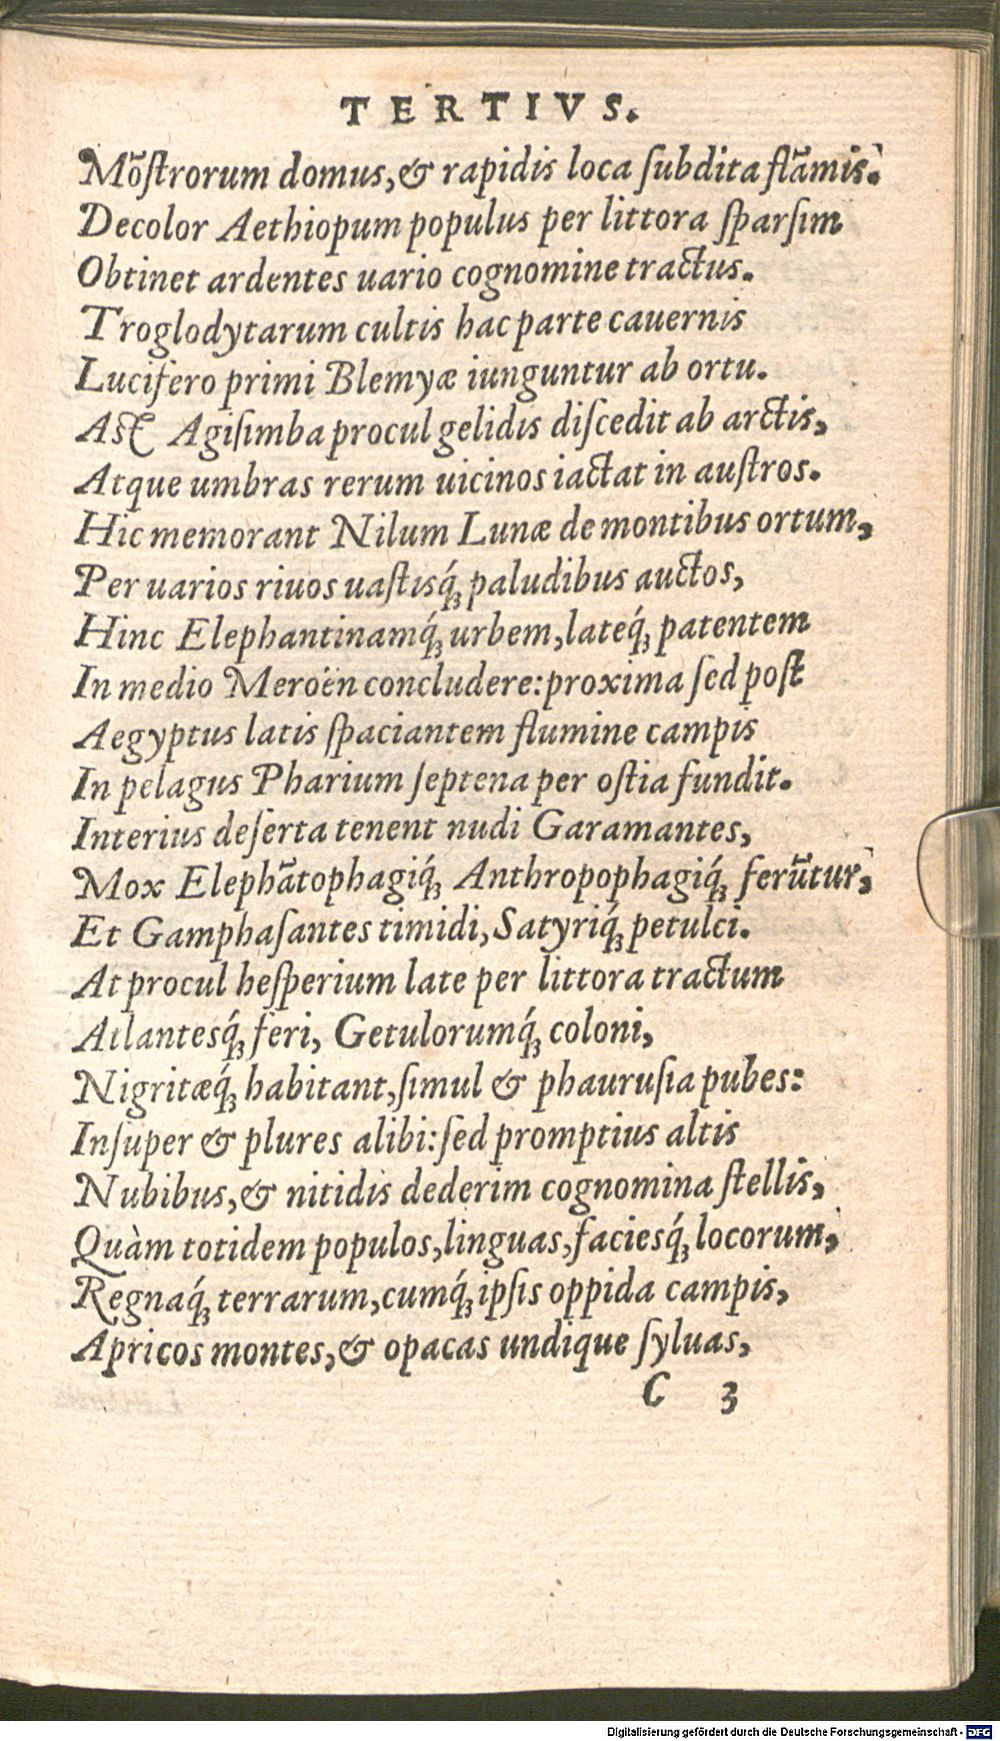 TERTIVS.
Mõſtrorum domus,& rapidis loca ſubdita flãmis.
Decolor Aethiopum populus per littora ſparſim
Obtinet ardentes uario cognomine tractus.
Troglodytarum cultis hac parte cauernis
Lucifero primi Blemyæ iunguntur ab ortu.
Aſt Agiſimba procul gelidis diſcedit ab arctis,
Atque umbras rerum uicinos iactat in auſtros.
Hic memorant Nilum Lunæ de montibus ortum,
Per uarios riuos uaſtisq́ꝫ paludibus auctos,
Hinc Elephantinamq́ꝫ urbem,lateq́ꝫ patentem
In medio Meroën concludere:proxima ſed poſt
Aegyptus latis ſpaciantem flumine campis
In pelagus Pharium ſeptena per oſtia fundit.
Interius deſerta tenent nudi Garamantes,
Mox Elephãtophagiq́ꝫ Anthropophagiq́ꝫ ferũtur,
Et Gamphaſantes timidi,Satyriq́ꝫ petulci.
At procul heſperium late per littora tractum
Atlantesq́ꝫ feri, Getulorumq́ꝫ coloni,
Nigritæq́ꝫ habitant,ſimul & phauruſia pubes:
Inſuper & plures alibi:ſed promptius altis
Nubibus,& nitidis dederim cognomina ſtellis,
Quàm totidem populos,linguas,faciesq́ꝫ locorum,
Regnaq́ꝫ terrarum,cumq́ꝫ ipſis oppida campis,
Apricos montes,& opacas undique ſyluas,
C 3
Digitalisierung gefördert durch die Deutsche Forschungsgemeinschaft - DFG